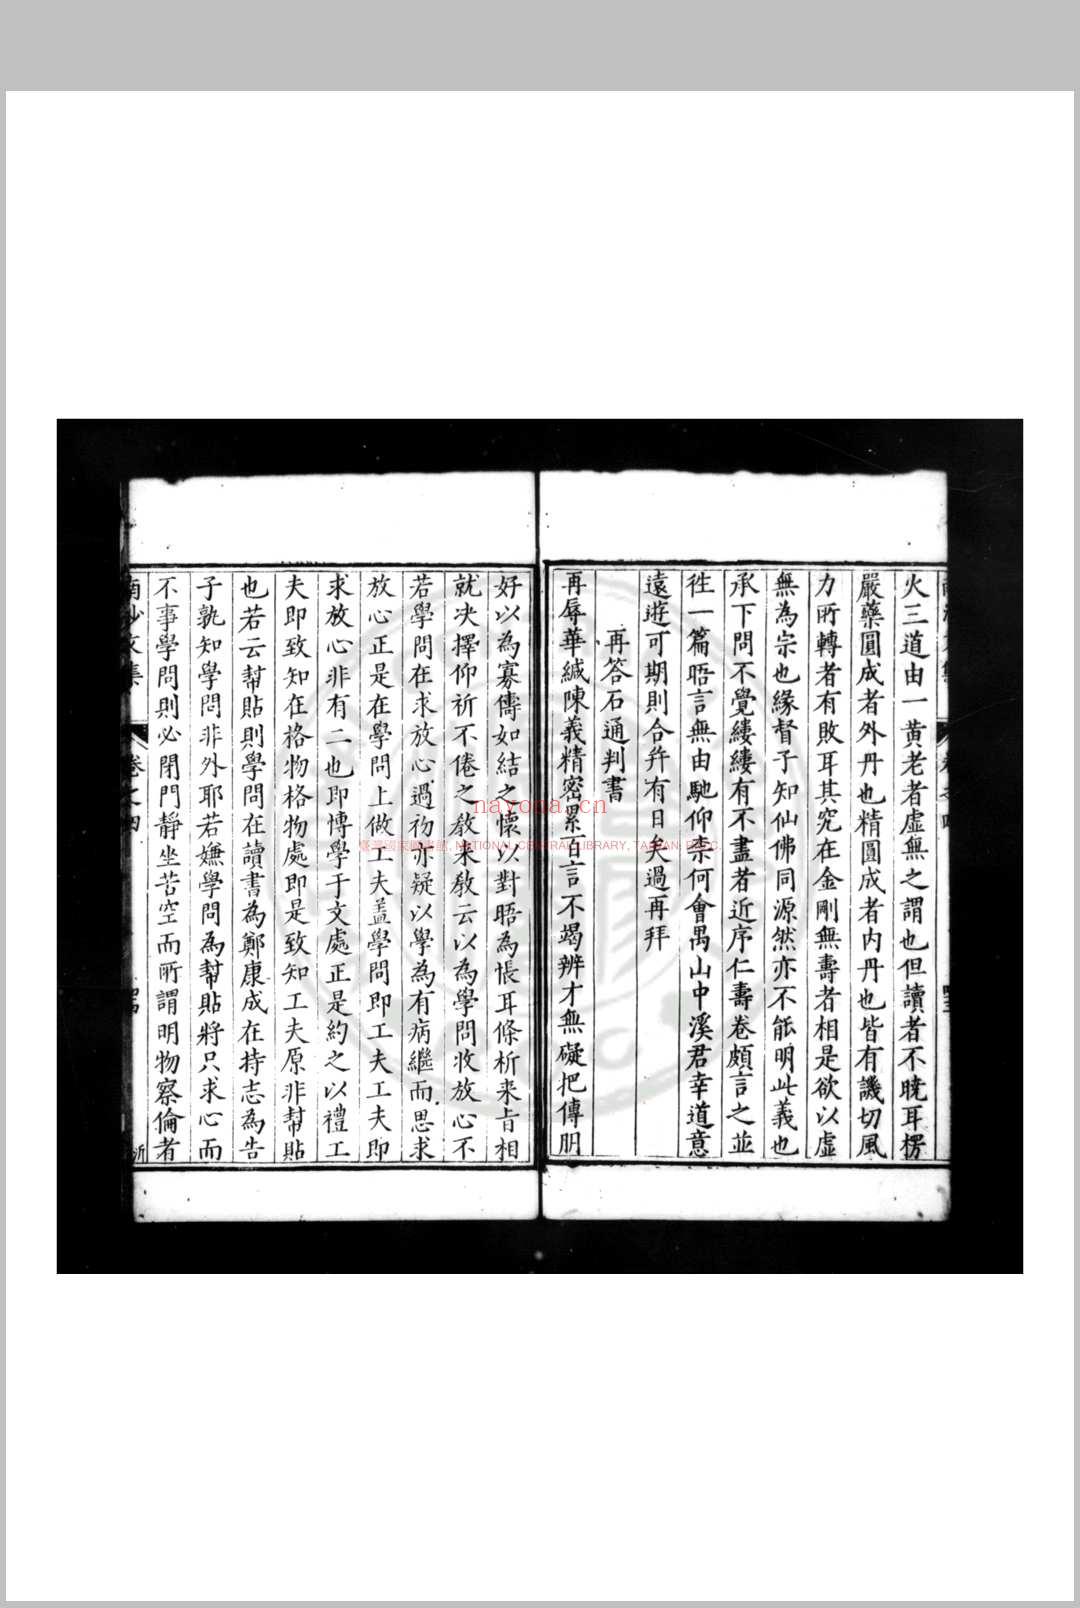 火三道由一黄老者虛無之謂也但讀者不曉耳楞
嚴藥圓成者外丹也精圓成者内丹也皆有譏切風
力所轉者有敗耳其究在金剛無壽者相是欲以虛
無為宗也緣督子知仙佛同源然亦不能明此義也
承下問不覺縷縷有不盡者近序仁壽卷頗言之並
徃一篇晤言無由馳仰柰何會禺山中溪君幸道意
遠遊可期則合并有日矣過再拜
再答石通判書
再辱華緘陳義精密累百言不竭辨才無礙把傳朋
好以為寡儔如結之懷以對晤為悵耳條析来㫖相
就决擇仰祈不倦之教来教云以為學問收放心不
若學問在求放心過初亦疑以學為有病繼而思求
放心正是在學問上做工夫蓋學問即工夫工夫即
求放心非有二也即博學于文處正是約之以禮工
夫即致知在格物格物處即是致知工夫原非幇貼
也若云幇貼則學問在讀書為鄭康成在持志為告
子孰知學問非外耶若嫌學問為幇貼將只求心而
不事學問則必閉門靜坐苦空而所謂明物察倫者
卷之四
nayona.cn
臺灣國家圖書館, NATIONAL CENTRAL LIBRARY, TAIWAN, R.O.C.